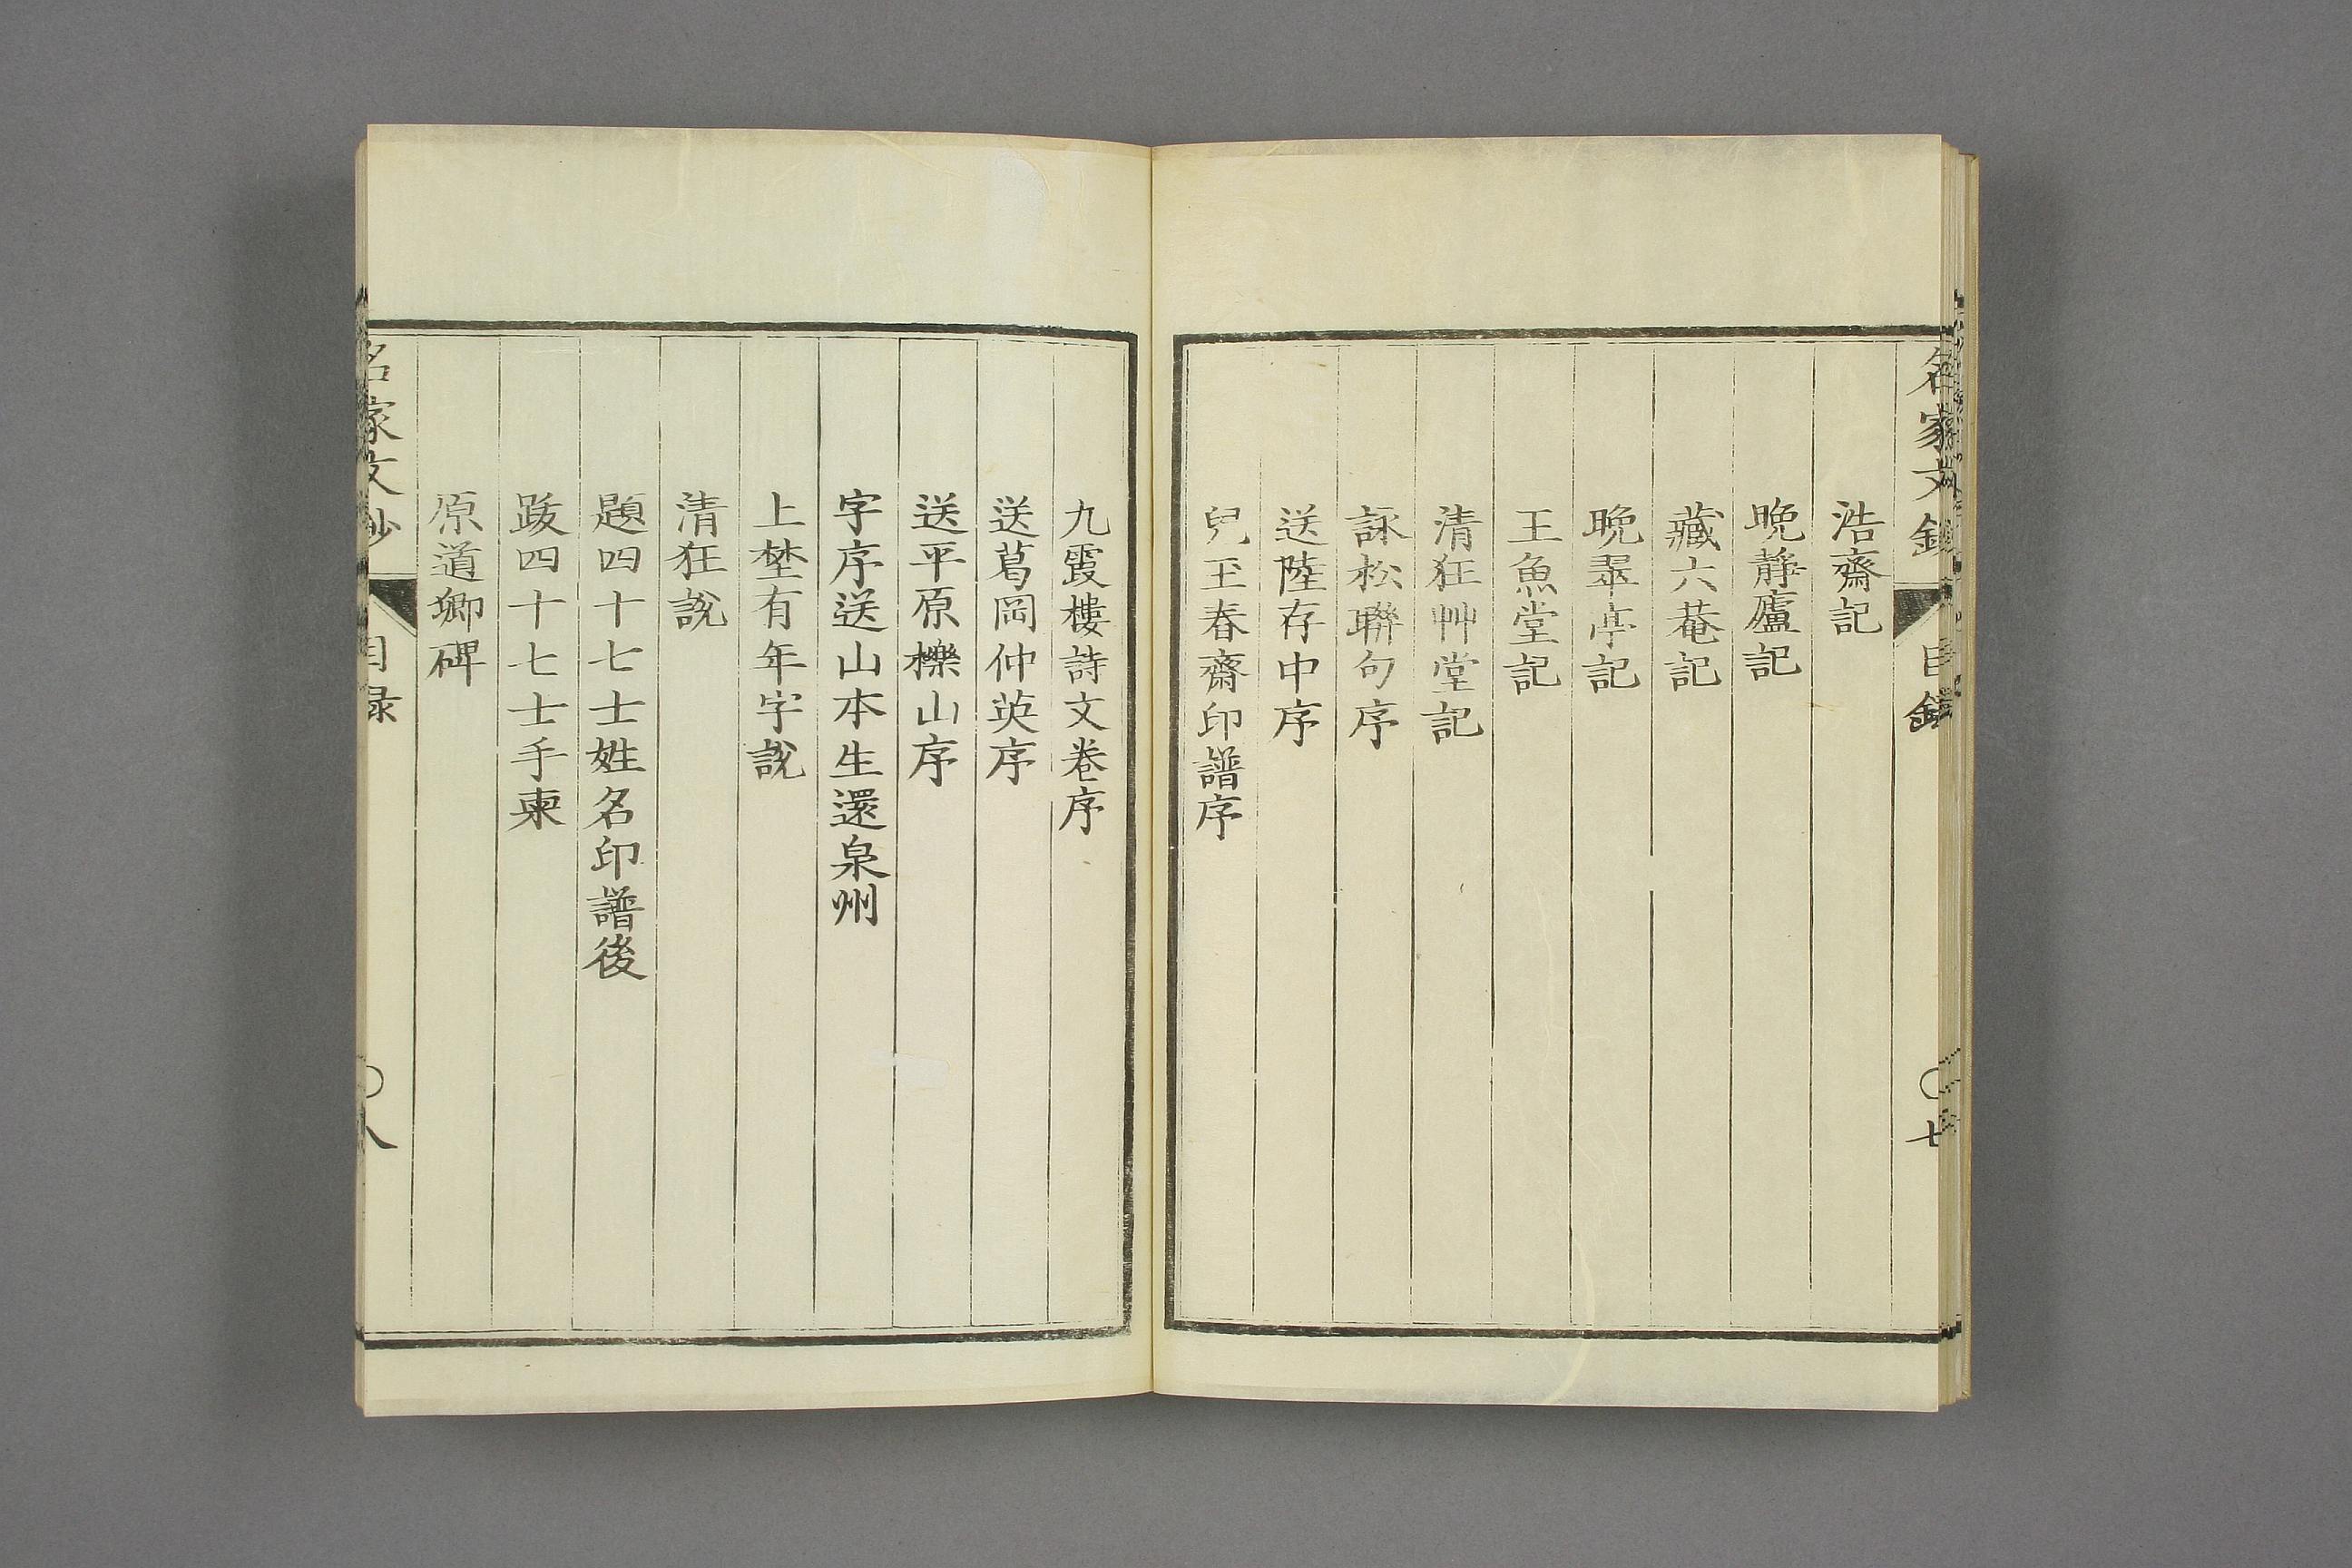 名家文鈔
目錄
七
浩齋記
晚靜廬記
藏六菴記
晚翠亭記
王魚堂記
清狂艸堂記
詠松聯句序
送陸存中序
兒玉春齋印譜序
九霞樓詩文卷序
送葛岡仲英序
送平原櫟山序
字序送山本生還泉州
上埜有年字說
清狂說
題四十七士姓名印譜後
跋四十七士手柬
原道卿碑
名家文鈔
目錄
八